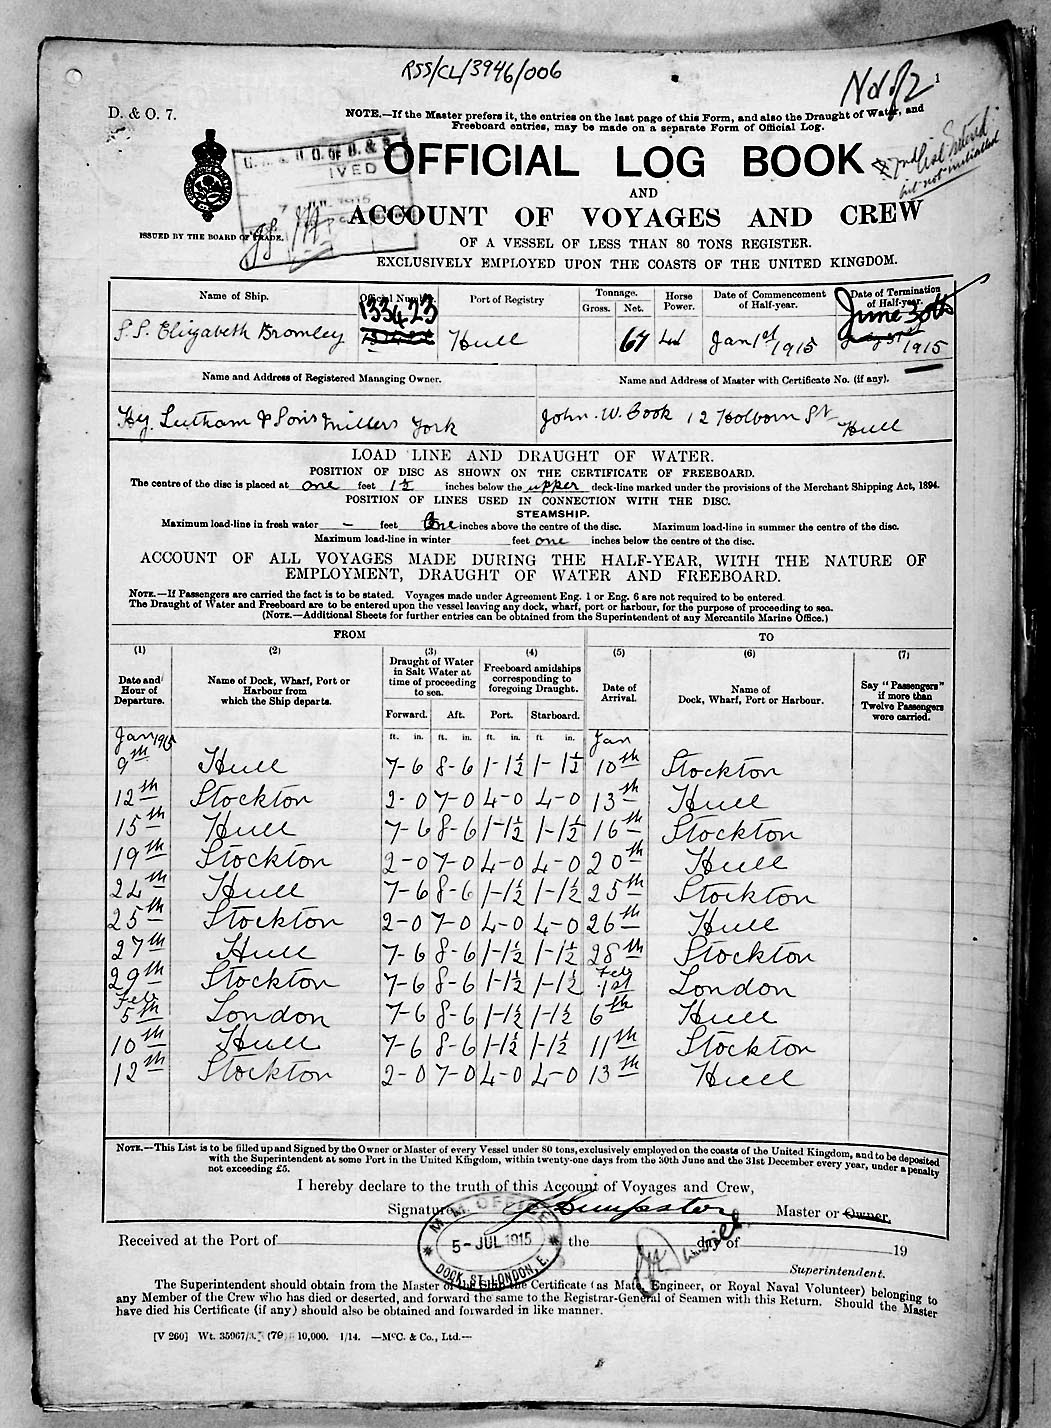 RSS/CL/3946/006
1
D. & O. 7.
NOTE.—If the Master prefers it, the entries on the last page of this Form, and also the Draught of Water, and
Freeboard entries, may be made on a separate Form of Official Log.
OFFICIAL LOG BOOK
AND
ACCOUNT OF VOYAGES AND CREW
ISSUED BY THE BOARD OF TRADE.
OF A VESSEL OF LESS THAN 80 TONS REGISTER.
EXCLUSIVELY EMPLOYED UPON THE COASTS OF THE UNITED KINGDOM.
Name of Ship. Official Number. Port of Registry Tonnage. Gross. Net. Horse Power. Date of Commencement of Half-year. Date of Termination of Half-year.
S.S. Elizabeth Bromley 133423 Hull 67 44 Jan 1st 1915 June 30th 1915
Name and Address of Registered Managing Owner. Name and Address of Master with Certificate No. (if any).
Hy. Leetham & Sons Millers York John. W. Cook 12 Holborn St Hull
LOAD LINE AND DRAUGHT OF WATER.
POSITION OF DISC AS SHOWN ON THE CERTIFICATE OF FREEBOARD.
The centre of the disc is placed at one feet 1½ inches below the upper deck-line marked under the provisions of the Merchant Shipping Act, 1894.
POSITION OF LINES USED IN CONNECTION WITH THE DISC.
STEAMSHIP.
Maximum load-line in fresh water - feet one inches above the centre of the disc. Maximum load-line in summer the centre of the disc.
Maximum load-line in winter feet one inches below the centre of the disc.
ACCOUNT OF ALL VOYAGES MADE DURING THE HALF-YEAR, WITH THE NATURE OF
EMPLOYMENT, DRAUGHT OF WATER AND FREEBOARD.
NOTE.—If Passengers are carried the fact is to be stated. Voyages made under Agreement Eng. 1 or Eng. 6 are not required to be entered.
The Draught of Water and Freeboard are to be entered upon the vessel leaving any dock, wharf, port or harbour, for the purpose of proceeding to sea.
(NOTE.—Additional Sheets for further entries can be obtained from the Superintendent of any Mercantile Marine Office.)
FROM TO
(1) (2) (3) (4) (5) (6) (7)
Date and Hour of Departure. Name of Dock, Wharf, Port or Harbour from which the Ship departs. Draught of Water in Salt Water at time of proceeding to sea. Freeboard amidships corresponding to foregoing Draught. Date of Arrival. Name of Dock, Wharf, Port or Harbour. Say "Passengers" if more than Twelve Passengers were carried.
Forward. Aft. Port. Starboard.
ft. in. ft. in. ft. in. ft in.
Jan 1915 Jan
9th Hull 7-6 8-6 1-1½ 1-1½ 10th Stockton
12th Stockton 2-0 7-0 4-0 4-0 13th Hull
15th Hull 7-6 8-6 1-1½ 1-1½ 16th Stockton
19th Stockton 2-0 7-0 4-0 4-0 20th Hull
24th Hull 7-6 8-6 1-1½ 1-1½ 25th Stockton
25th Stockton 2-0 7-0 4-0 4-0 26th Hull
27th Hull 7-6 8-6 1-1½ 1-1½ 28th Stockton
29th Stockton 7-6 8-6 1-1½ 1-1½ Feb 1st London
Feb 5th London 7-6 8-6 1-1½ 1-1½ 6th Hull
10th Hull 7-6 8-6 1-1½ 1-1½ 11th Stockton
12th Stockton 2-0 7-0 4-0 4-0 13th Hull
NOTE.—This List is to be filled up and Signed by the Owner or Master of every Vessel under 80 tons, exclusively employed on the coasts of the United Kingdom, and to be deposited
with the Superintendent at some Port in the United Kingdom, within twenty-one days from the 30th June and the 31st December every year, under a penalty
not exceeding £5.
I hereby declare to the truth of this Account of Voyages and Crew,
Signature Master or Owner.
Received at the Port of the day of 19
M. M. OFFICE
5-JUL 1915
DOCK ST. LONDON, E.
Superintendent.
The Superintendent should obtain from the Master of the Ship the Certificate (as Mate, Engineer, or Royal Naval Volunteer) belonging to
any Member of the Crew who has died or deserted, and forward the same to the Registrar-General of Seamen with this Return. Should the Master
have died his Certificate (if any) should also be obtained and forwarded in like manner.
[V 260] Wt. 35967/3. (79) 10,000. 1/14. —McC. & Co., Ltd.—